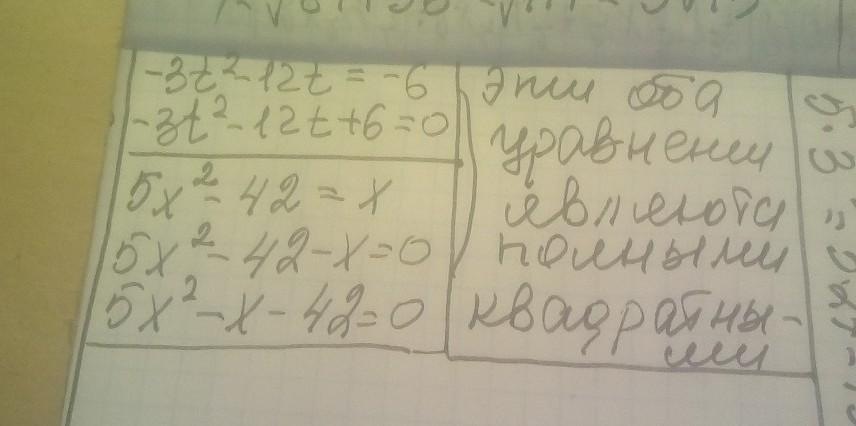 -3t²-12t = -6
-3t²-12t+6=0
5x²-42 = x
5x²-42-x=0
5x²-x-42=0
эти оба
уравнени
являютя
полными
квадратны-
ми